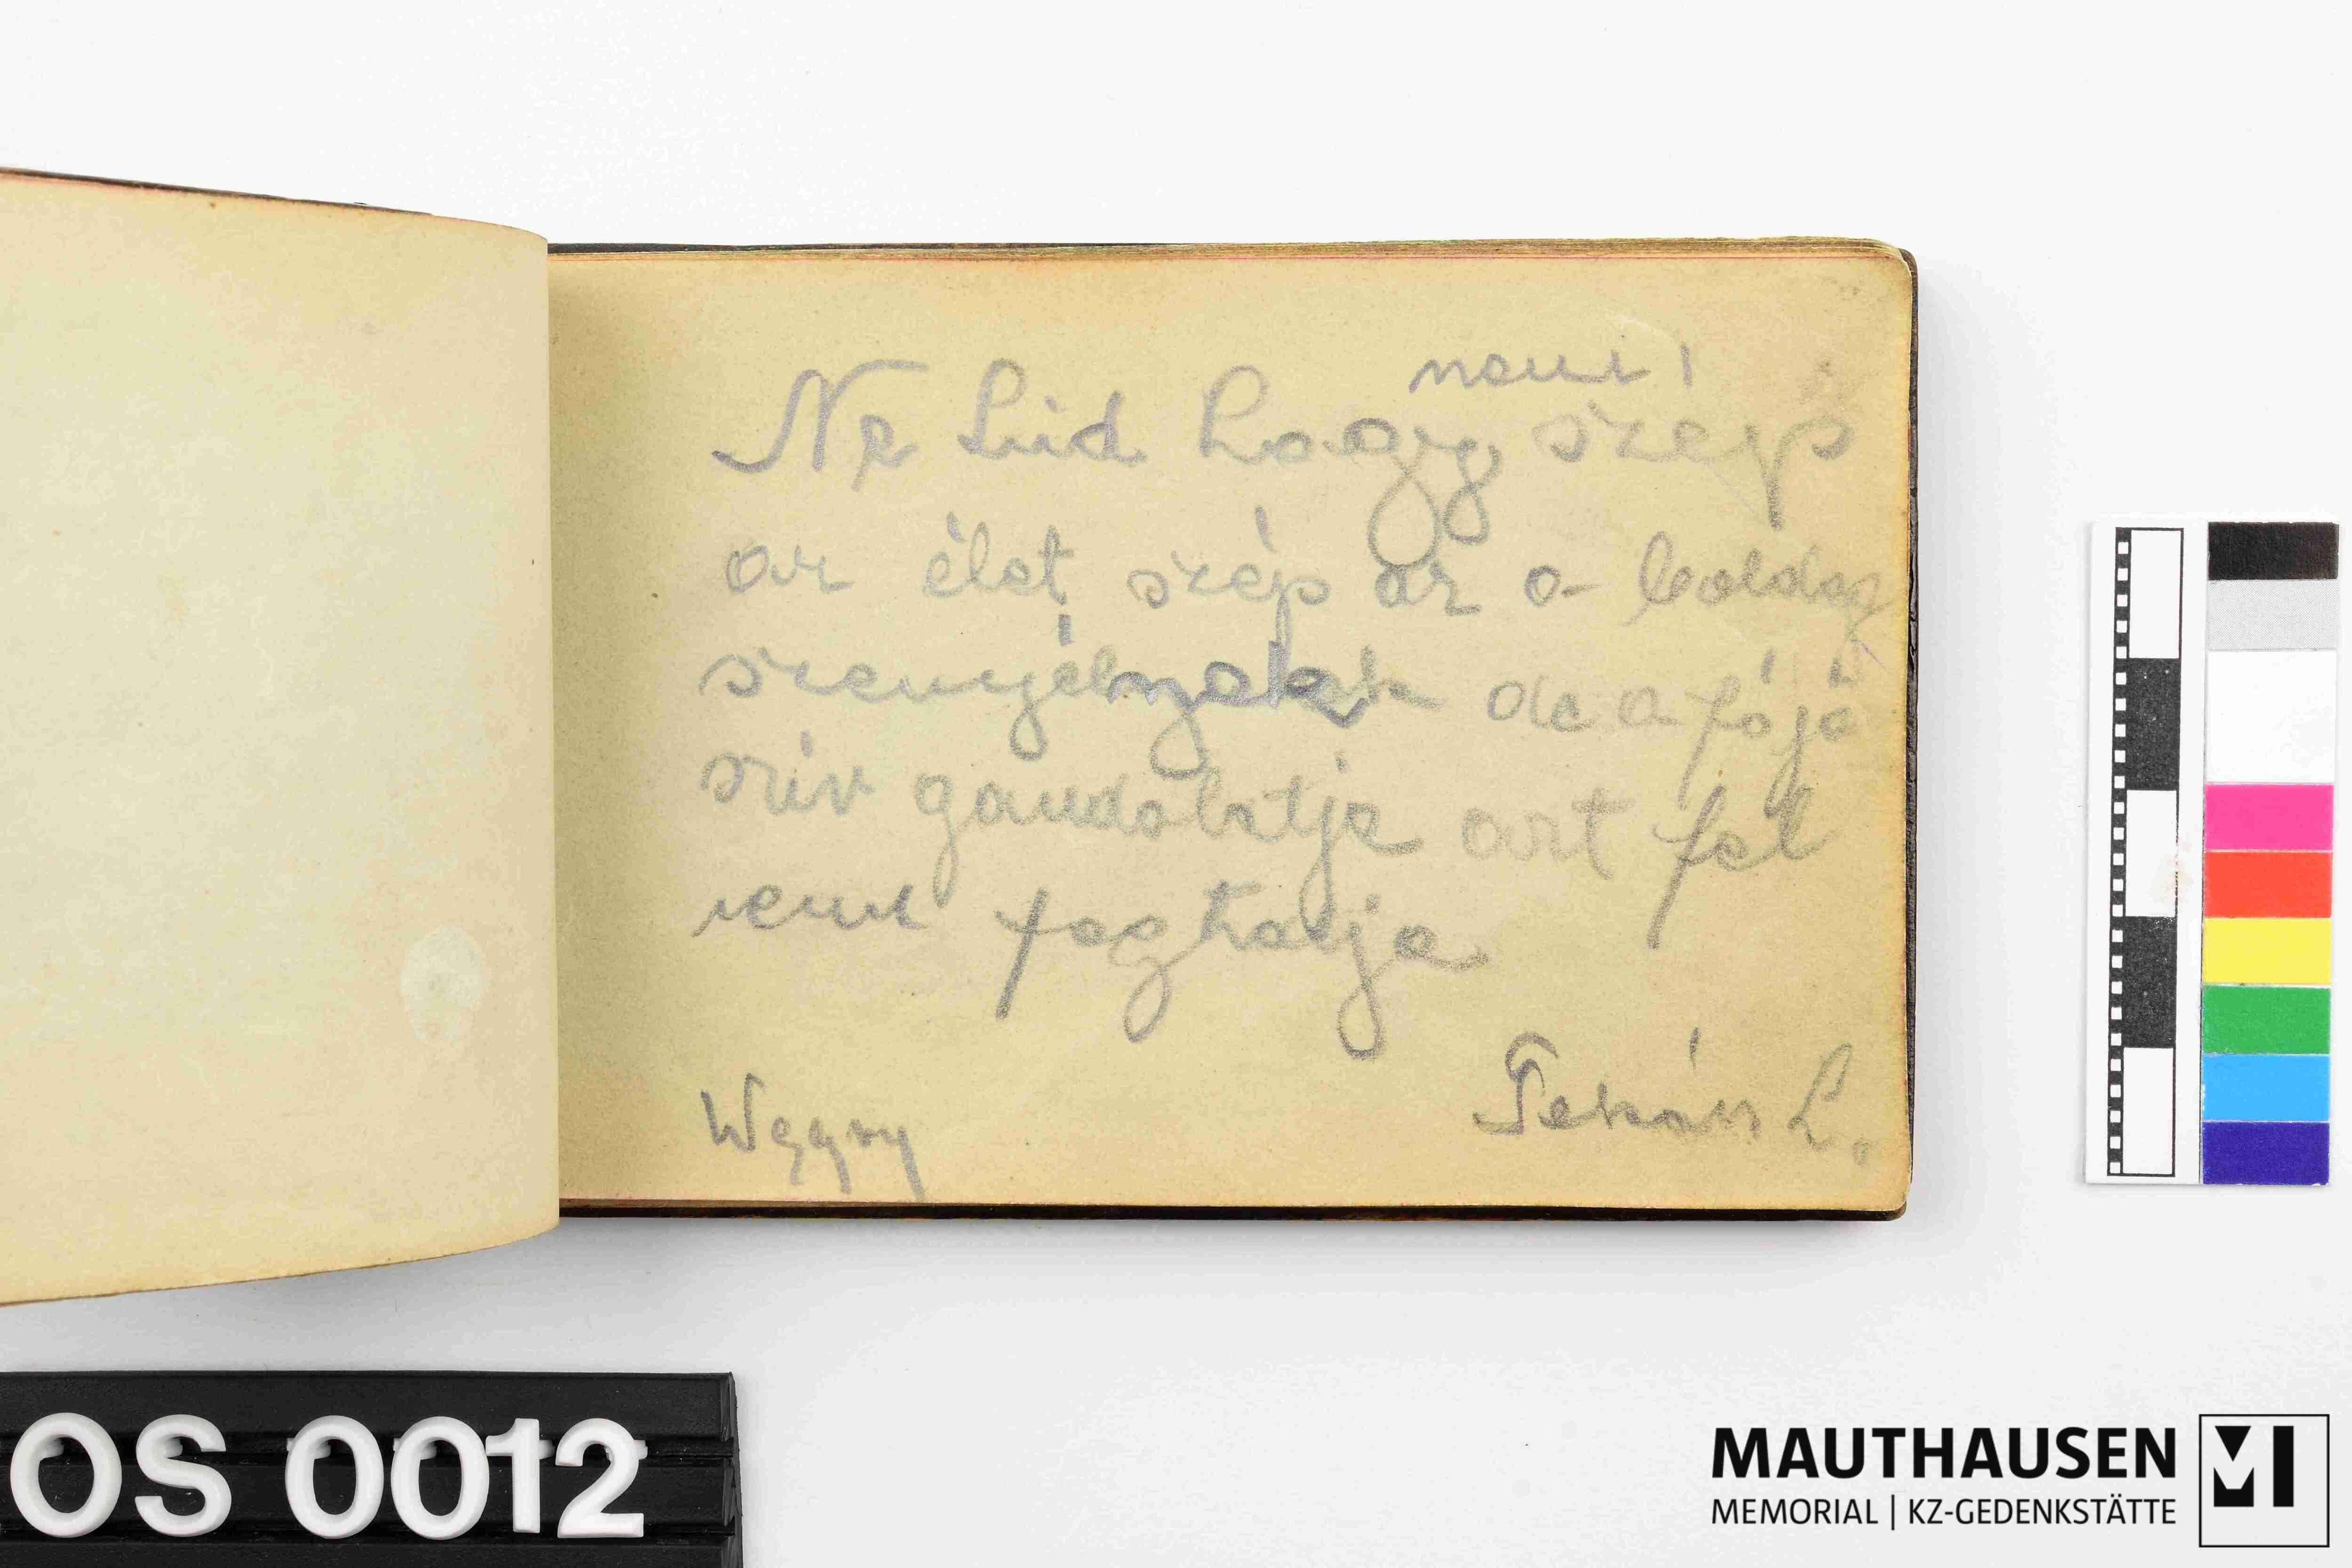 nem!
Ne hid hogy szép
az élet szép az a boldog
szemyélnek de a fájó
sziv gondolatja azt fel
nem foghatja
L.
OS 0012
MAUTHAUSEN
MEMORIAL | KZ-GEDENKSTÄTTE